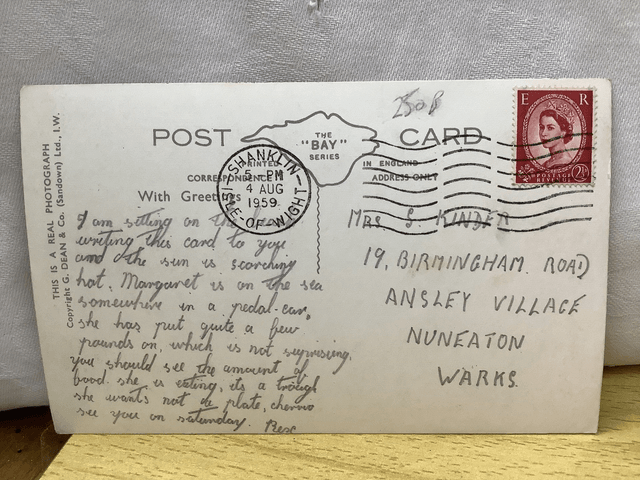 250B
POST CARD
THE
"BAY"
SERIES
PRINTED IN ENGLAND
CORRESPONDENCE ADDRESS ONLY
With Greetings
SHANKLIN
5 - PM
4 AUG
1959
ISLE-OF-WIGHT
E R
POSTAGE
REVENUE
2½
THIS IS A REAL PHOTOGRAPH
Copyright G. DEAN & Co. (Sandown) Ltd., I.W.
I am sitting on the
writing this card to you
and the sun is scorching
hot. Margaret is on the sea
somewhere in a pedal-car,
she has put quite a few
pounds on, which is not suprising,
you should see the amount of
food she is eating, its a trough
she wants not a plate, cheerio
see you on saturday.
MRS S. KINDER
19, BIRMINGHAM ROAD
ANSLEY VILLAGE
NUNEATON
WARKS.